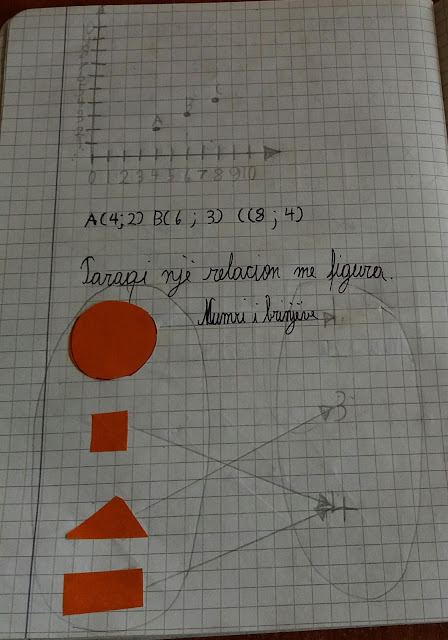 A
B
C
0 1 2 3 4 5 6 7 8 9 10
A(4;2) B(6 ; 3) C(8 ; 4)
Paraqi një relacion me figura.
Numri i brinjëve
3
4